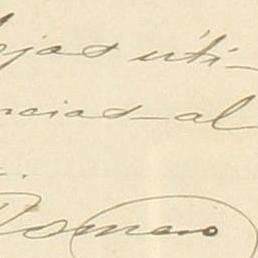 ejas úti-
ncias al
Romero